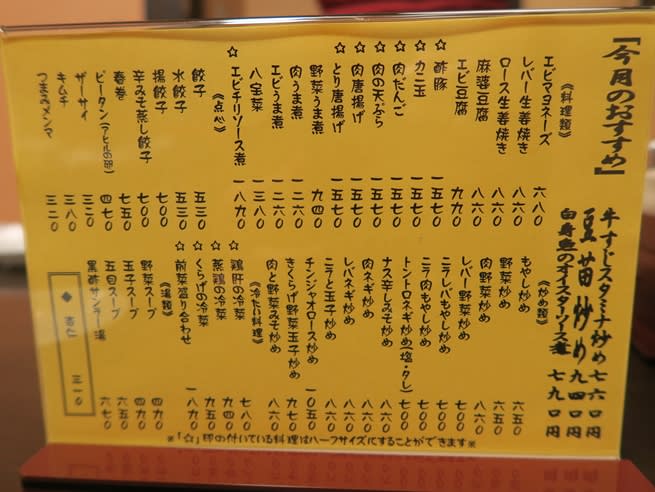 『今月のおすすめ』
牛すじスタミナ炒め 七六〇円
豆苗炒め 九四〇円
白身魚のオイスターソース煮 七九〇円
《料理類》
エビマヨネーズ 六八〇
レバー生姜焼き 八六〇
ロース生姜焼き 八六〇
麻婆豆腐 八六〇
エビ豆腐 九九〇
☆酢豚 一五七〇
☆カニ玉 一五七〇
☆肉だんご 一五七〇
☆肉の天ぷら 一五七〇
☆肉唐揚げ 一五七〇
☆とり唐揚げ 一五七〇
野菜うま煮 九四〇
肉うま煮 一二六〇
エビうま煮 一二六〇
八宝菜 一三八〇
☆エビチリソース煮 一八九〇
《点心》
餃子 五三〇
水餃子 五三〇
揚餃子 七〇〇
辛みそ蒸し餃子 七〇〇
春巻 七五〇
ピータン(アヒルの卵) 四七〇
ザーサイ 三二〇
キムチ 三八〇
つまみメンマ 三二〇
《炒め類》
もやし炒め 六五〇
野菜炒め 六五〇
肉野菜炒め 八六〇
レバー野菜炒め 八六〇
ニラレバもやし炒め 七〇〇
ニラ肉もやし炒め 七〇〇
トントロネギ炒め(塩・タレ) 七〇〇
ナス辛しみそ炒め 七〇〇
肉ネギ炒め 八六〇
レバネギ炒め 八六〇
ニラと玉子炒め 八六〇
チンジャオロース炒め 一〇五〇
きくらげ野菜玉子炒め 九七〇
肉と野菜みそ炒め 八六〇
《冷たい料理》
☆鶏肝の冷菜 七八〇
☆蒸鶏の冷菜 九四〇
☆くらげの冷菜 九五〇
☆前菜盛り合わせ 一八九〇
《湯類》
野菜スープ 四九〇
玉子スープ 四九〇
五目スープ 六五〇
黒酢サンラー湯 六七〇
◆杏仁 三一〇
※「☆」印の付いている料理はハーフサイズにすることができます※